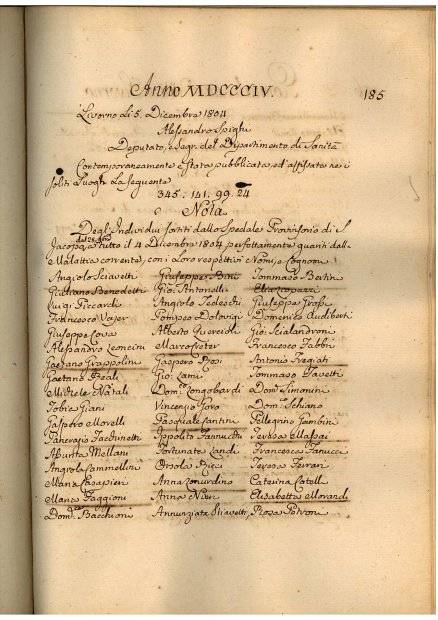 Anno MDCCCIV.
185
Livorno li 5. Dicembre 1804
Alessandro Spighi
Deputato, e Segr. del Dipartimento di Sanità
Contemporaneamente è stata pubblicata, ed affissata nei
soliti Luoghi La seguente
345. 141. 99. 24
Nota
Degl'Individui sortiti dallo Spedale Provvisorio di S.
Jacopo, a tutto il 4 Dicembre 1804 perfettamente guariti dalla
Malattia corrente, con i Loro respettivi Nomi, e Cognomi
Angiolo Sciavetti Giuseppe Bini Tommaso Bertin
Giuliano Benedetti Gio: Antonelli
Luigi Riccardi Angiolo Tedeschi Giuseppe
Francesco Pompeo Domenico Audiberti
Giuseppe Cova Alberto Quercioli Gio: Scialandroni
Alessandro Leoncini Marco Francesco Fabbri
Gaetano Grappolini Gaspero Antonio
Gaetano Gio: Lami Tommaso Favetti
Michele Natali Dom.co Longobardi Dom.co Simonini
Tobia Giani Vincenzio Dom.co Schiano
Gaspero Morelli Pasquale Santini Pellegrino Gambini
Pancrazio Ippolito Fannucchi Teresa
Assunta Mellani Fortunata Landi Francesca Fanucci
Angiola Cammellini Orsola Ricci Teresa Ferrari
Maria Anna Caterina
Maria Faggioni Anna Neri Elisabetta Morandi
Dom.co Bacchioni Annunziata Rosa Petroni